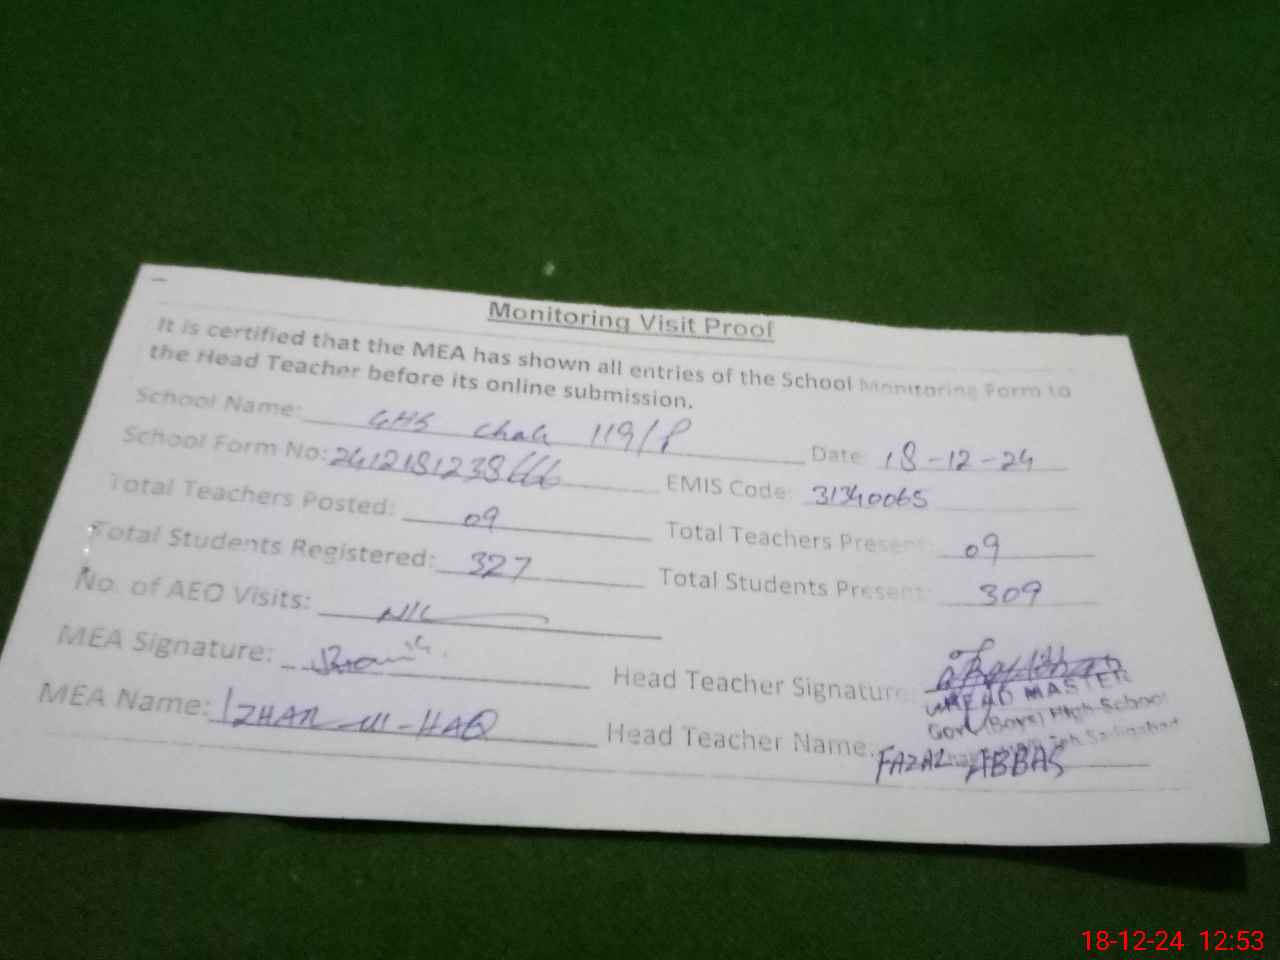 Monitoring Visit Proof
It is certified that the MEA has shown all entries of the School Monitoring Form to
the Head Teacher before its online submission.
School Name: GHS Chak 119/P Date: 18-12-24
School Form No: 2412181238666 EMIS Code: 31340065
Total Teachers Posted: 09 Total Teachers Present: 09
Total Students Registered: 327 Total Students Present: 309
No. of AEO Visits: NIL
MEA Signature: Head Teacher Signature:
HEAD MASTER
Govt (Boys) High School
MEA Name: IZHAR-UL-HAQ Head Teacher Name: FAZAL ABBAS
18-12-24 12:53